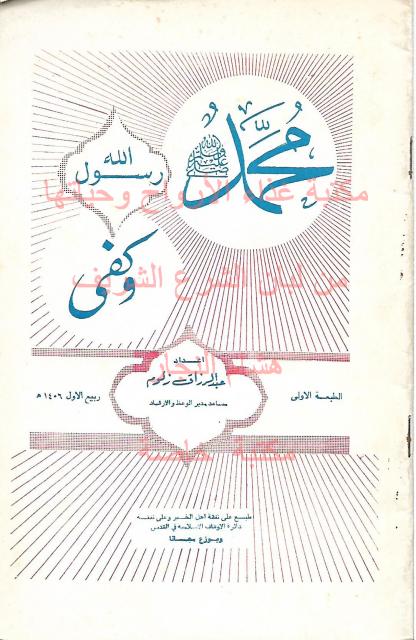 محمد
ﷺ
رسول
الله
وكفى
مكتبة غذاء الأرواح وحياتها
من لبان الشرع الشريف
هشام النجار
مكتبة خاصة
اعداد
عبد الرزاق
مساعد مدير الوعظ والارشاد
الطبعة الاولى
ربيع الاول ١٤٠٦ ه
طبع على نفقة اهل الخير وعلى نفقة
دائرة الاوقاف الاسلامية في القدس
ويوزع مجانا